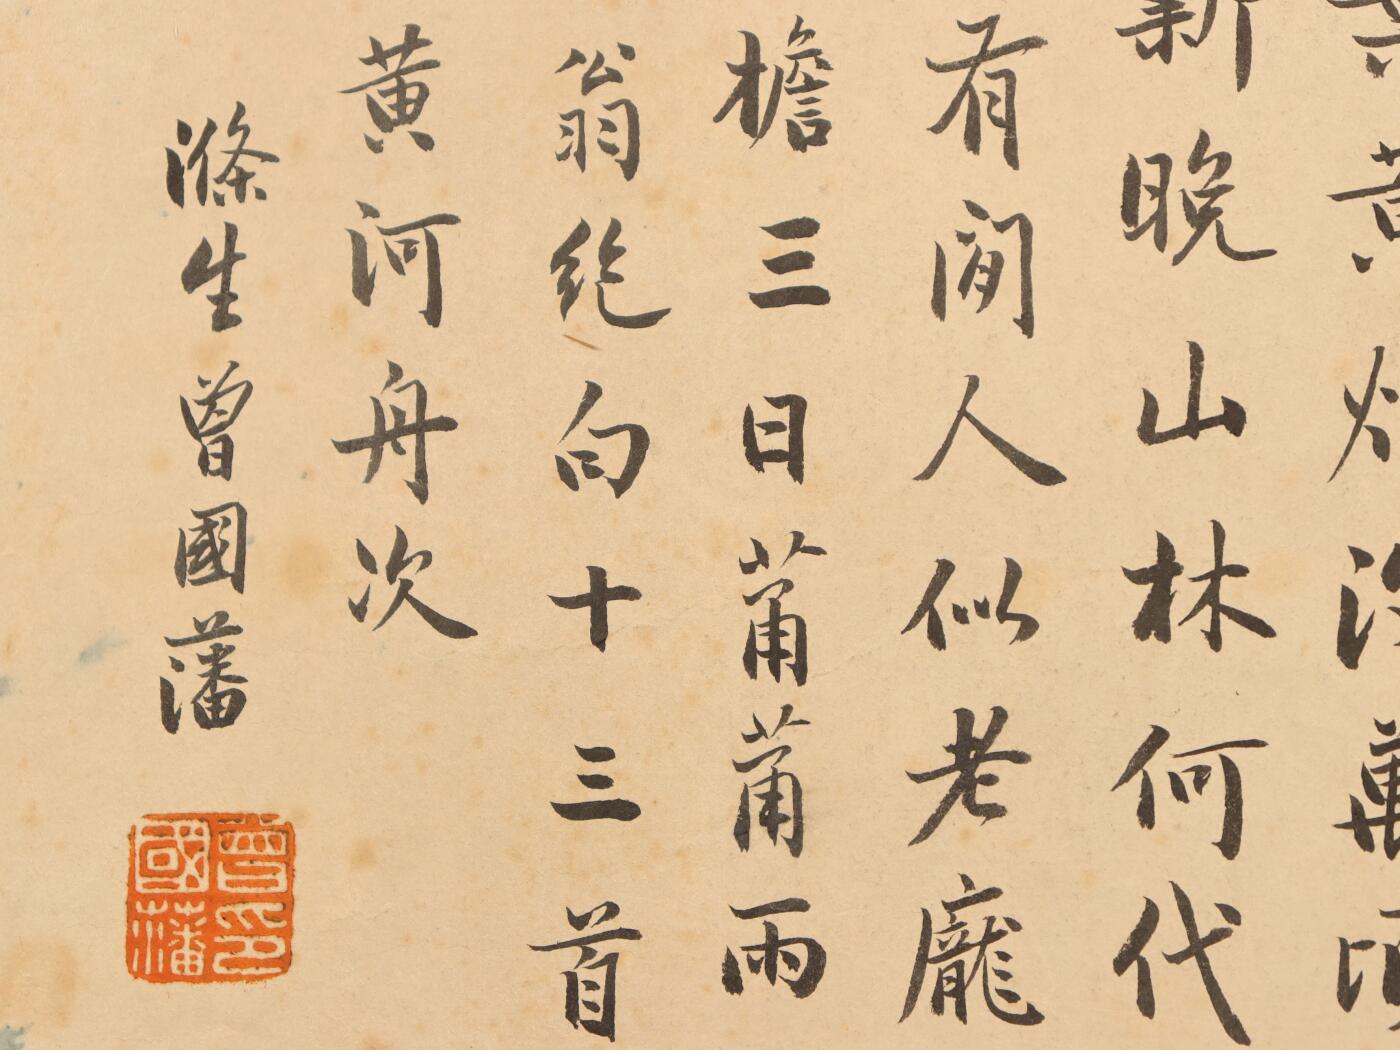 黄萬
新晚山林何代
有閒人似老龐
檐三日蕭蕭雨
翁絶句十三首
黄河舟次
滌生曾國藩
曾印
國藩